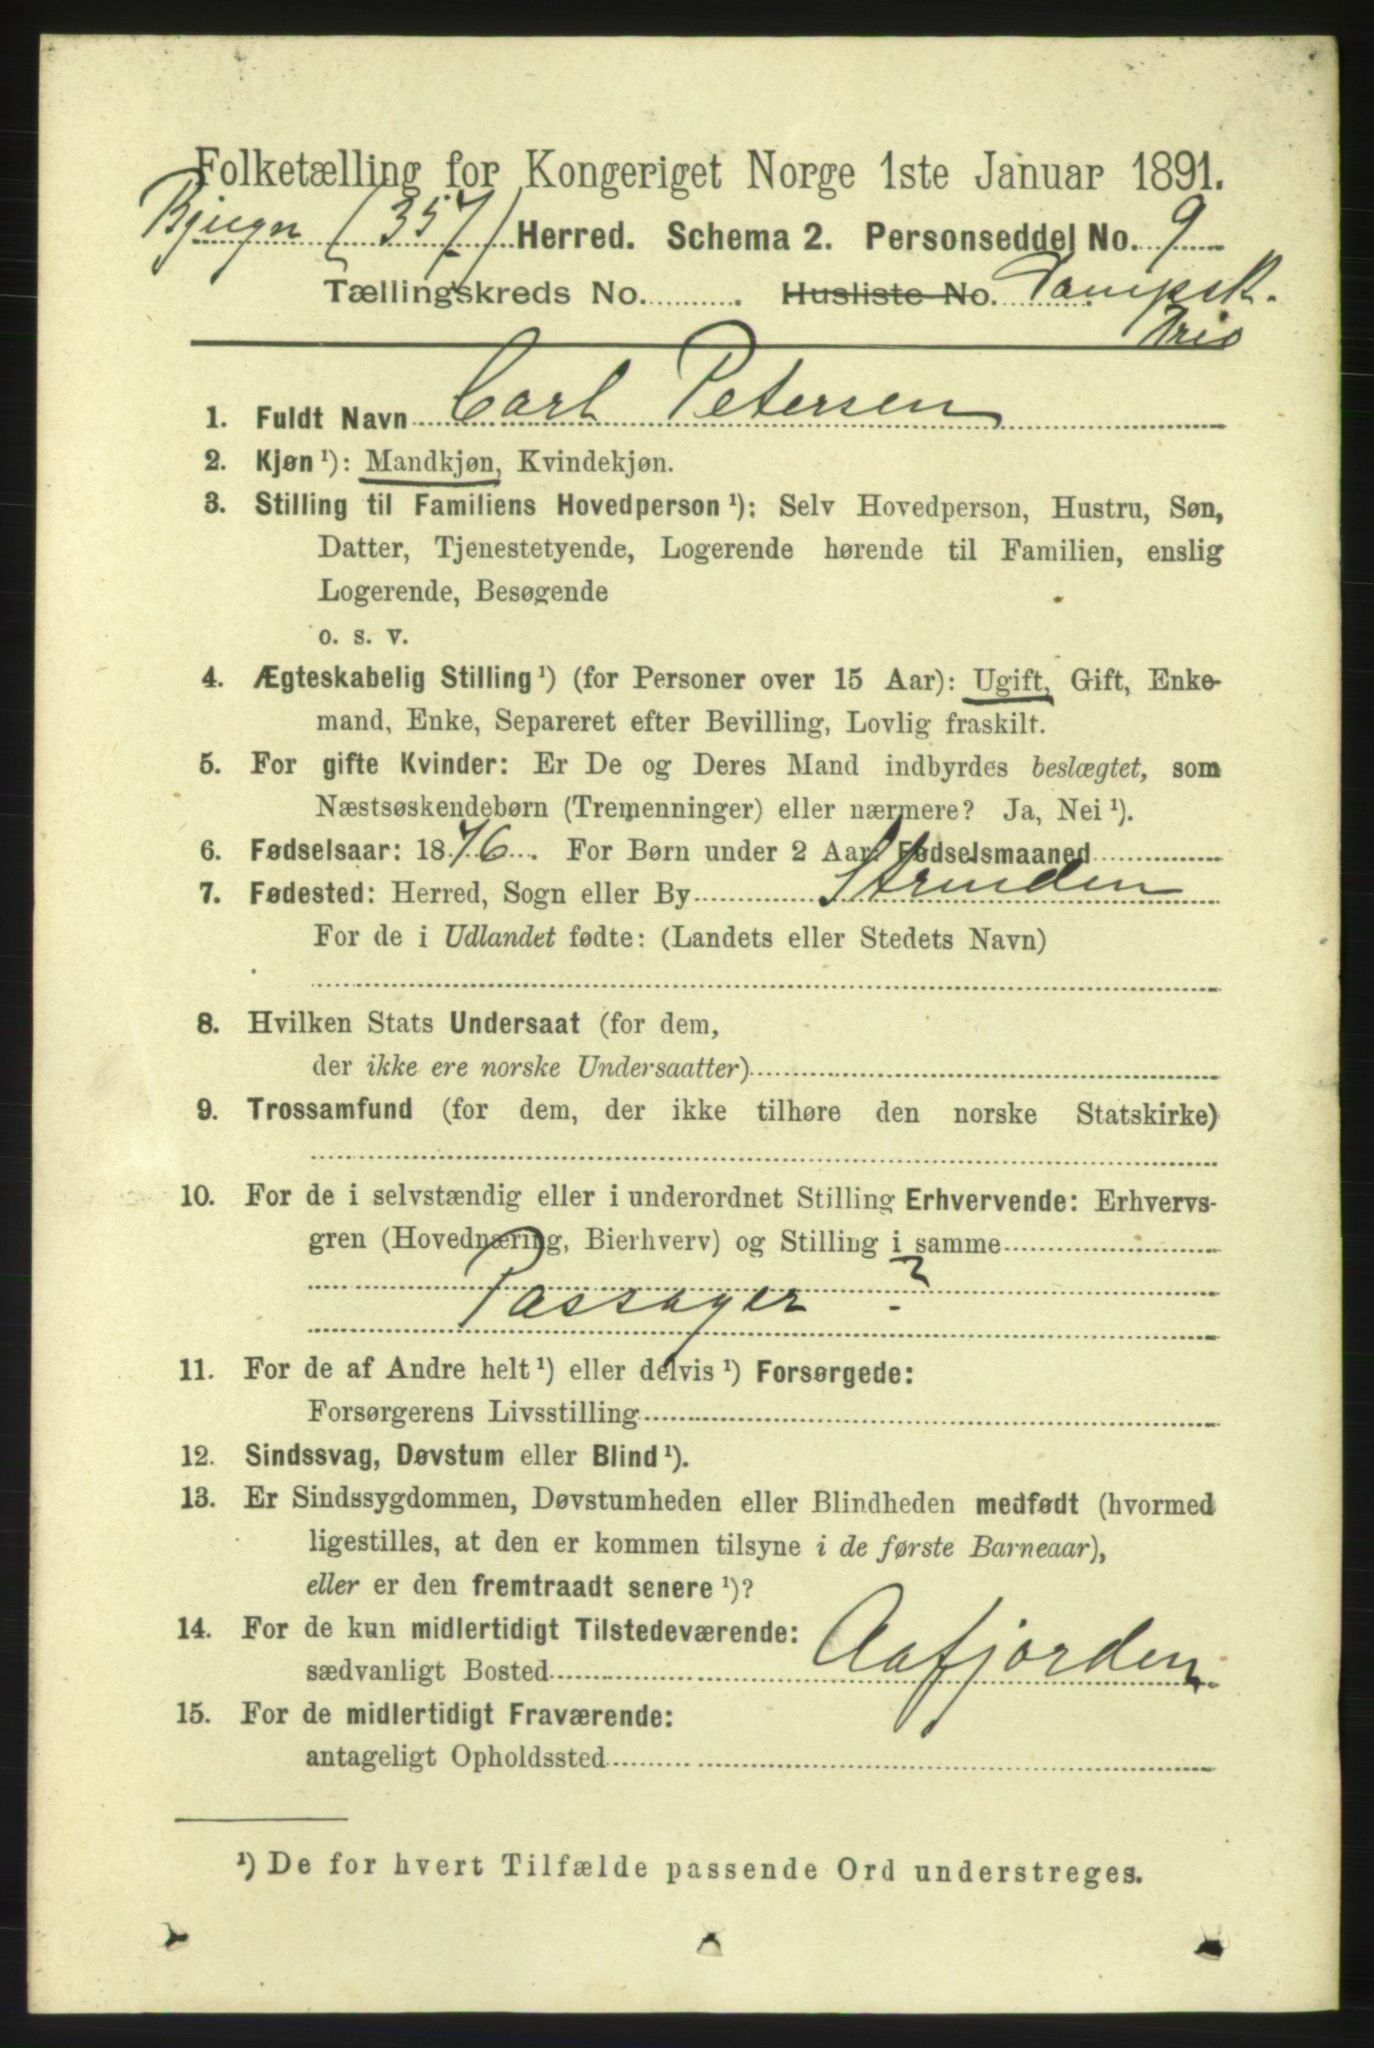 Folketælling for Kongeriget Norge 1ste Januar 1891.
Bjugn (357) Herred. Schema 2. Personseddel No. 9
Tællingskreds No. ............ Husliste No. Dampsk.
1. Fuldt Navn Carl Petersen
2. Kjøn ¹): Mandkjøn, Kvindekjøn.
3. Stilling til Familiens Hovedperson ¹): Selv Hovedperson, Hustru, Søn,
Datter, Tjenestetyende, Logerende hørende til Familien, enslig
Logerende, Besøgende
o. s. v.
4. Ægteskabelig Stilling ¹) (for Personer over 15 Aar): Ugift, Gift, Enke-
mand, Enke, Separeret efter Bevilling, Lovlig fraskilt.
5. For gifte Kvinder: Er De og Deres Mand indbyrdes beslægtet, som
Næstsøskendebørn (Tremenninger) eller nærmere? Ja, Nei ¹).
6. Fødselsaar: 1876. For Børn under 2 Aar: Fødselsmaaned
7. Fødested: Herred, Sogn eller By Strinden
For de i Udlandet fødte: (Landets eller Stedets Navn)
8. Hvilken Stats Undersaat (for dem,
der ikke ere norske Undersaatter)
9. Trossamfund (for dem, der ikke tilhøre den norske Statskirke)
10. For de i selvstændig eller i underordnet Stilling Erhvervende: Erhvervs-
gren (Hovednæring, Bierhverv) og Stilling i samme
Passager ?
11. For de af Andre helt ¹) eller delvis ¹) Forsørgede:
Forsørgerens Livsstilling
12. Sindssvag, Døvstum eller Blind ¹).
13. Er Sindssygdommen, Døvstumheden eller Blindheden medfødt (hvormed
ligestilles, at den er kommen tilsyne i de første Barneaar),
eller er den fremtraadt senere ¹)?
14. For de kun midlertidigt Tilstedeværende:
sædvanligt Bosted Aafjorden
15. For de midlertidigt Fraværende:
antageligt Opholdssted
¹) De for hvert Tilfælde passende Ord understreges.